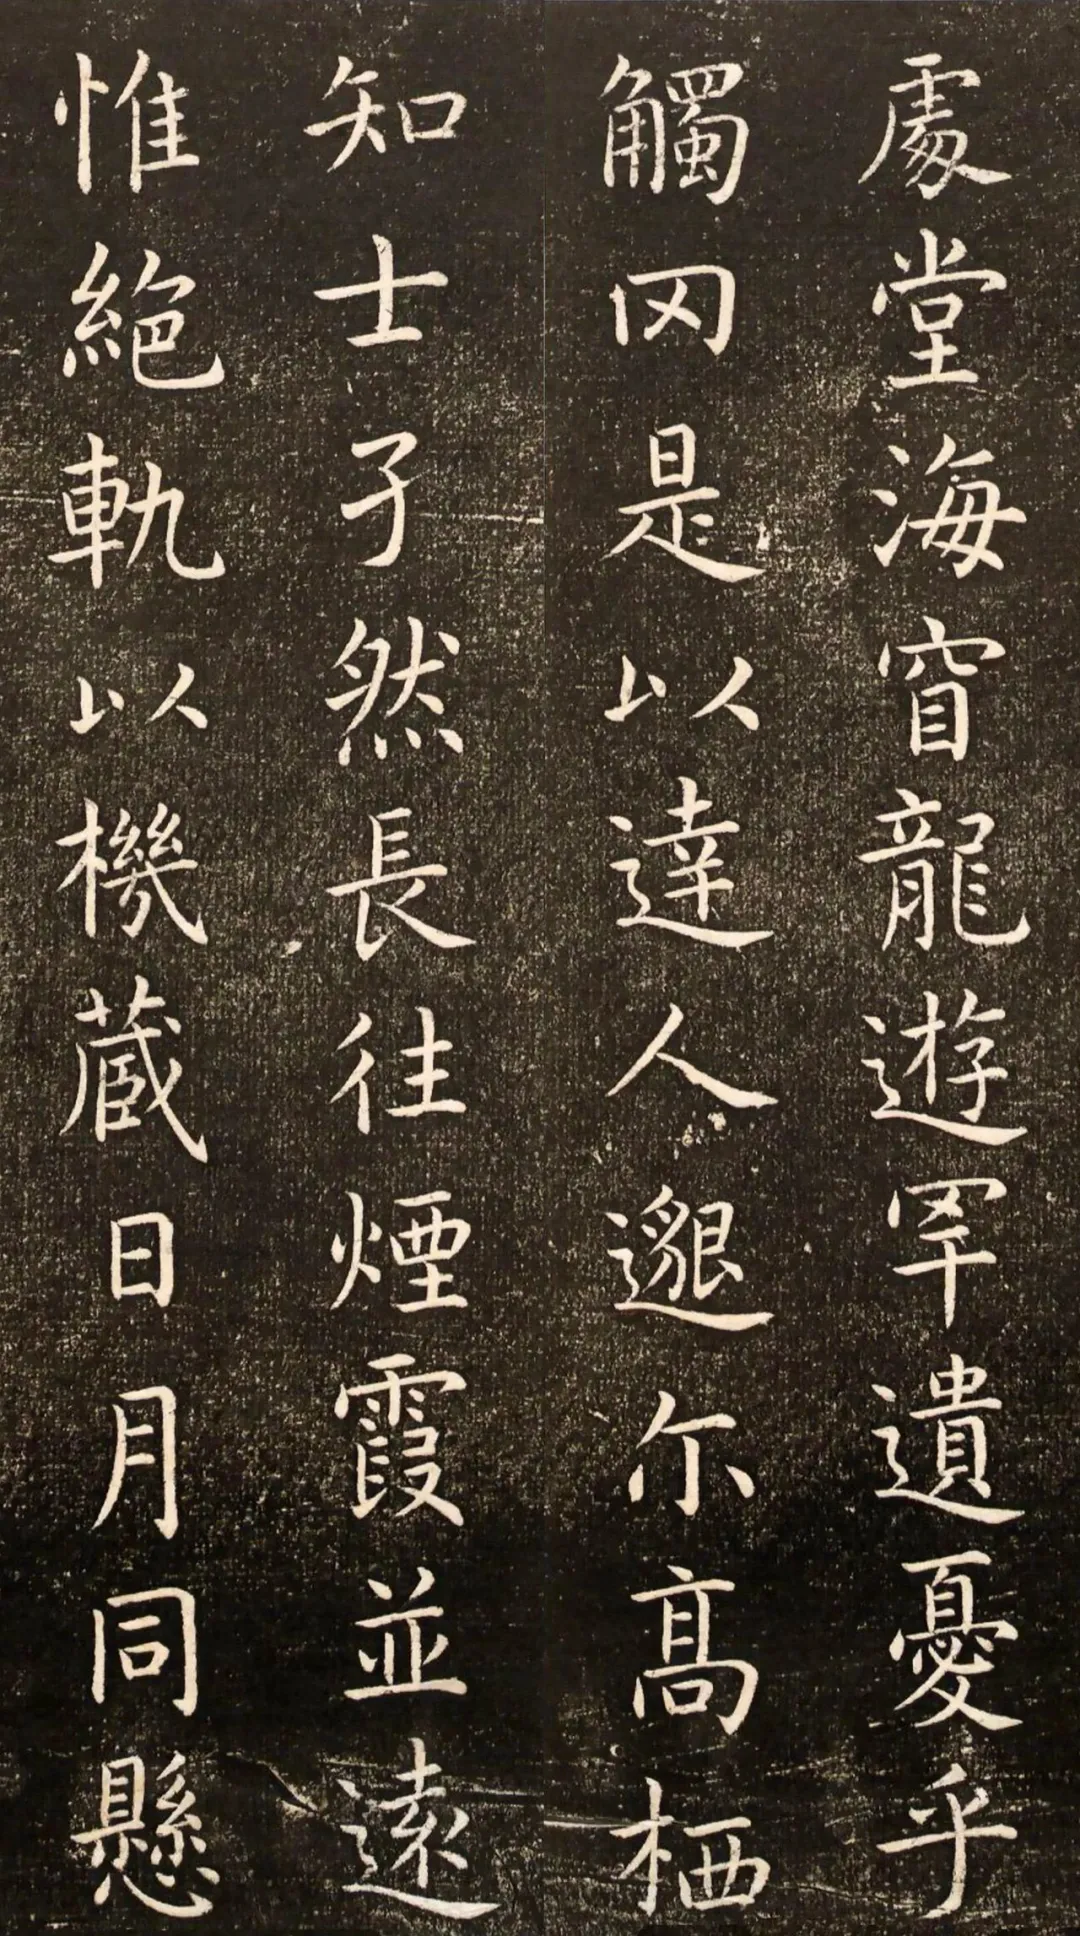 處堂海窅龍遊罕遺憂乎
觸冈是以達人邈尔高栖
知士孑然長往煙霞並遠
惟絕軌以機蔵日月同懸